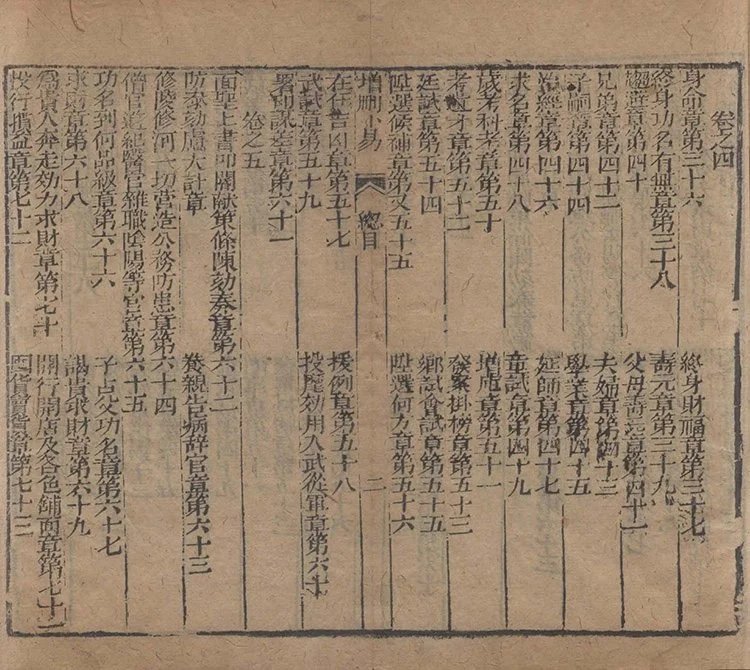 卷之四
身命章第三十六　終身財福章第三十七
終身功名有無章第三十八　壽元章第三十九
趨避章第四十　父母壽元章第四十一
兄弟章第四十二　夫婦章第四十三
子嗣章第四十四　學業章第四十五
治經章第四十六　延師章第四十七
求名章第四十八　童試章第四十九
歲考科考章第五十　增庠章第五十一
考遺才章第五十二　發案掛榜章第五十三
廷試章第五十四　鄉試會試章第五十五
陞選候補章第又五十五　陞選何方章第五十六
增刪卜易　總目　二
在任吉凶章第五十七　援例章第五十八
武試章第五十九　投麾効用入武從軍章第六十
署印謀差章第六十一
卷之五
面聖上書叩閽獻策條陳劾奏章第六十二
防參劾慮大計章　養親告病辭官章第六十三
修陵修河一切營造公務防患章第六十四
僧官道紀醫官雜職陰陽等官章第六十五
功名到何品級章第六十六　子占父功名章第六十七
求財章第六十八　謁貴求財章第六十九
為貴人奔走効力求財章第七十　開行開店及各色鋪面章第七十一
投行損益章第七十二　囤貨賣貨章第七十三